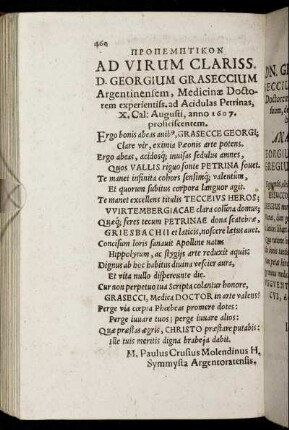 460
ΠΡΟΠΕΜΠΤΙΚΟΝ
AD VIRUM CLARISS.
D. GEORGIUM GRASECCIUM
Argentinensem, Medicinæ Docto-
rem experientiss. ad Acidulas Petrinas,
X. Cal: Augusti, anno 1607.
proficiscentem.
Ergo bonis abeas avibꝰ, GRASECCE GEORGI,
Clare vir, eximia Pæonis arte potens.
Ergo abeas, acidosq́; invisas sedulus amnes,
Quos VALLIS riguo fonte PETRINA fovet.
Te manet infinita cohors sensimq́; valentûm,
Et quorum subitus corpora languor agit.
Te manet excellens titulis TECCEIVS HEROS;
VVIRTEMBERGIACAE clara columna domus;
Quæq́; feres tecum PETRINAE dona scatebræ,
GRIESBACHII et laticis, noscere lætus avet.
Concisum loris sanavit Apolline natus
Hippolytum, ac stygijs arte reduxit aquis:
Dignus ab hoc habitus divina vescier aura,
Et vita nullo disperëunte die.
Cur non perpetuo tua Scripta colantur honore,
GRASECCI, Medica DOCTOR in arte valens?
Perge via cœpta Phœbeas promere dotes:
Perge iuvare tuos; perge iuvare alios:
Quæ præstas ægris, CHRISTO præstare putabis:
Ille tuis meritis digna brabeja dabit.
M. Paulus Crusius Molendinus H.
Symmysta Argentoratensis.